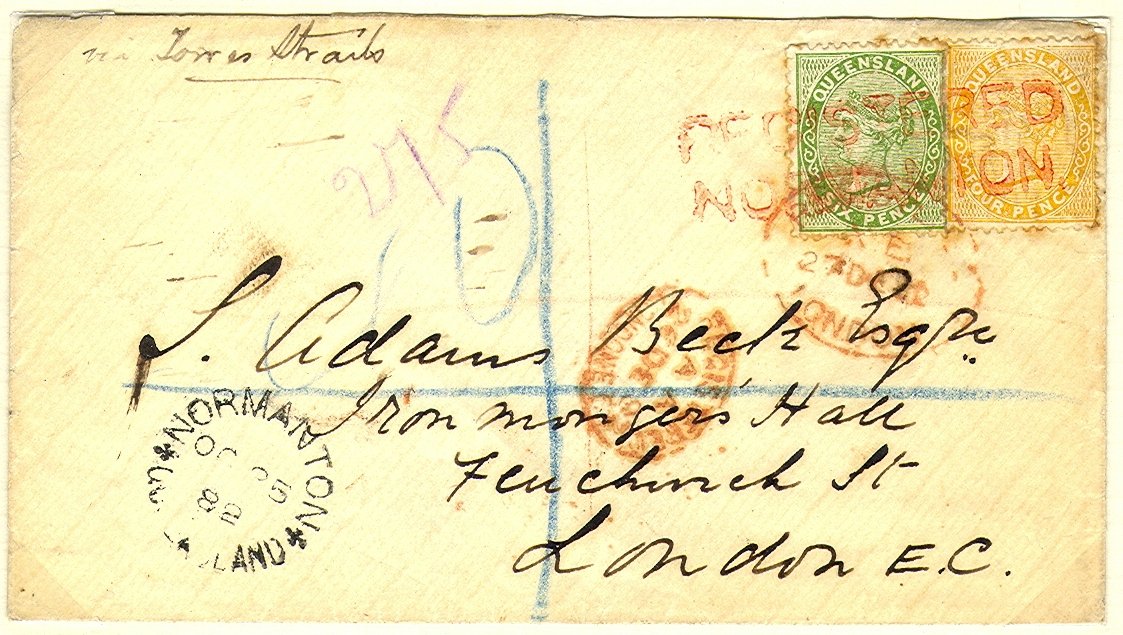 via Torres Straits
275
QUEENSLAND
SIX PENCE
QUEENSLAND
FOUR PENCE
27 DE
LONDON
S. Adams Beck Esqre
Iron mongers' Hall
Fenchurch St
London E.C.
NORMANTON
OC 25
88